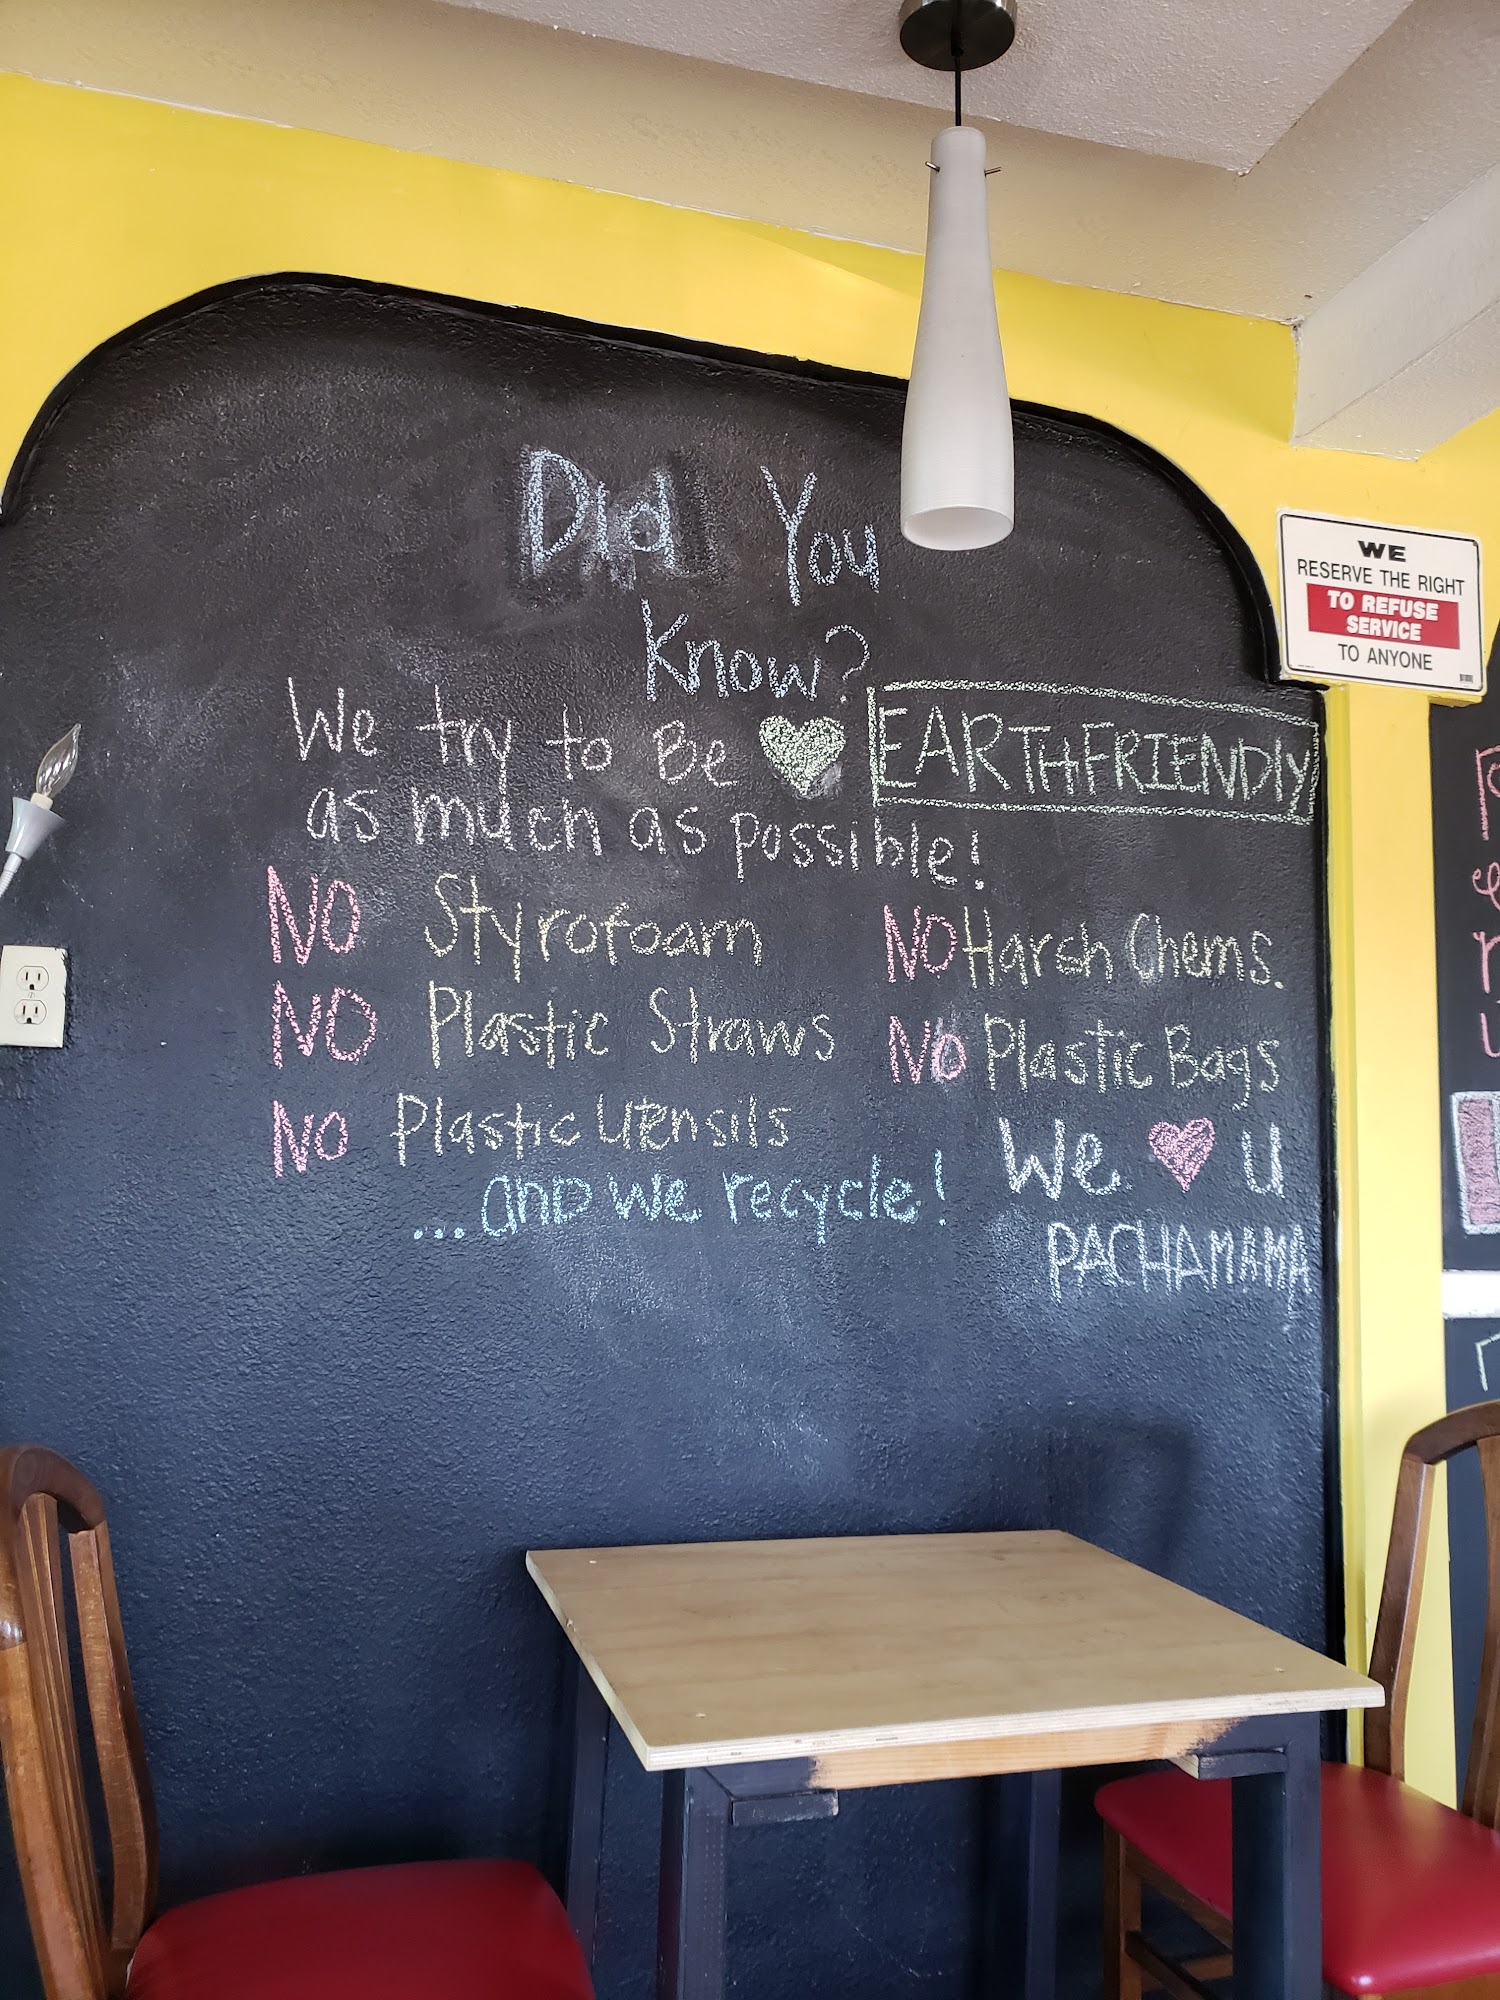 Did You
Know?
We try to Be EARTHFRIENDlY
as much as possible!
NO Styrofoam
NO Plastic Straws
NO Plastic Utensils
... and we recycle!
NO Harsh Chems.
NO Plastic Bags
We ♥ U
PACHAMAMA
WE
RESERVE THE RIGHT
TO REFUSE
SERVICE
TO ANYONE